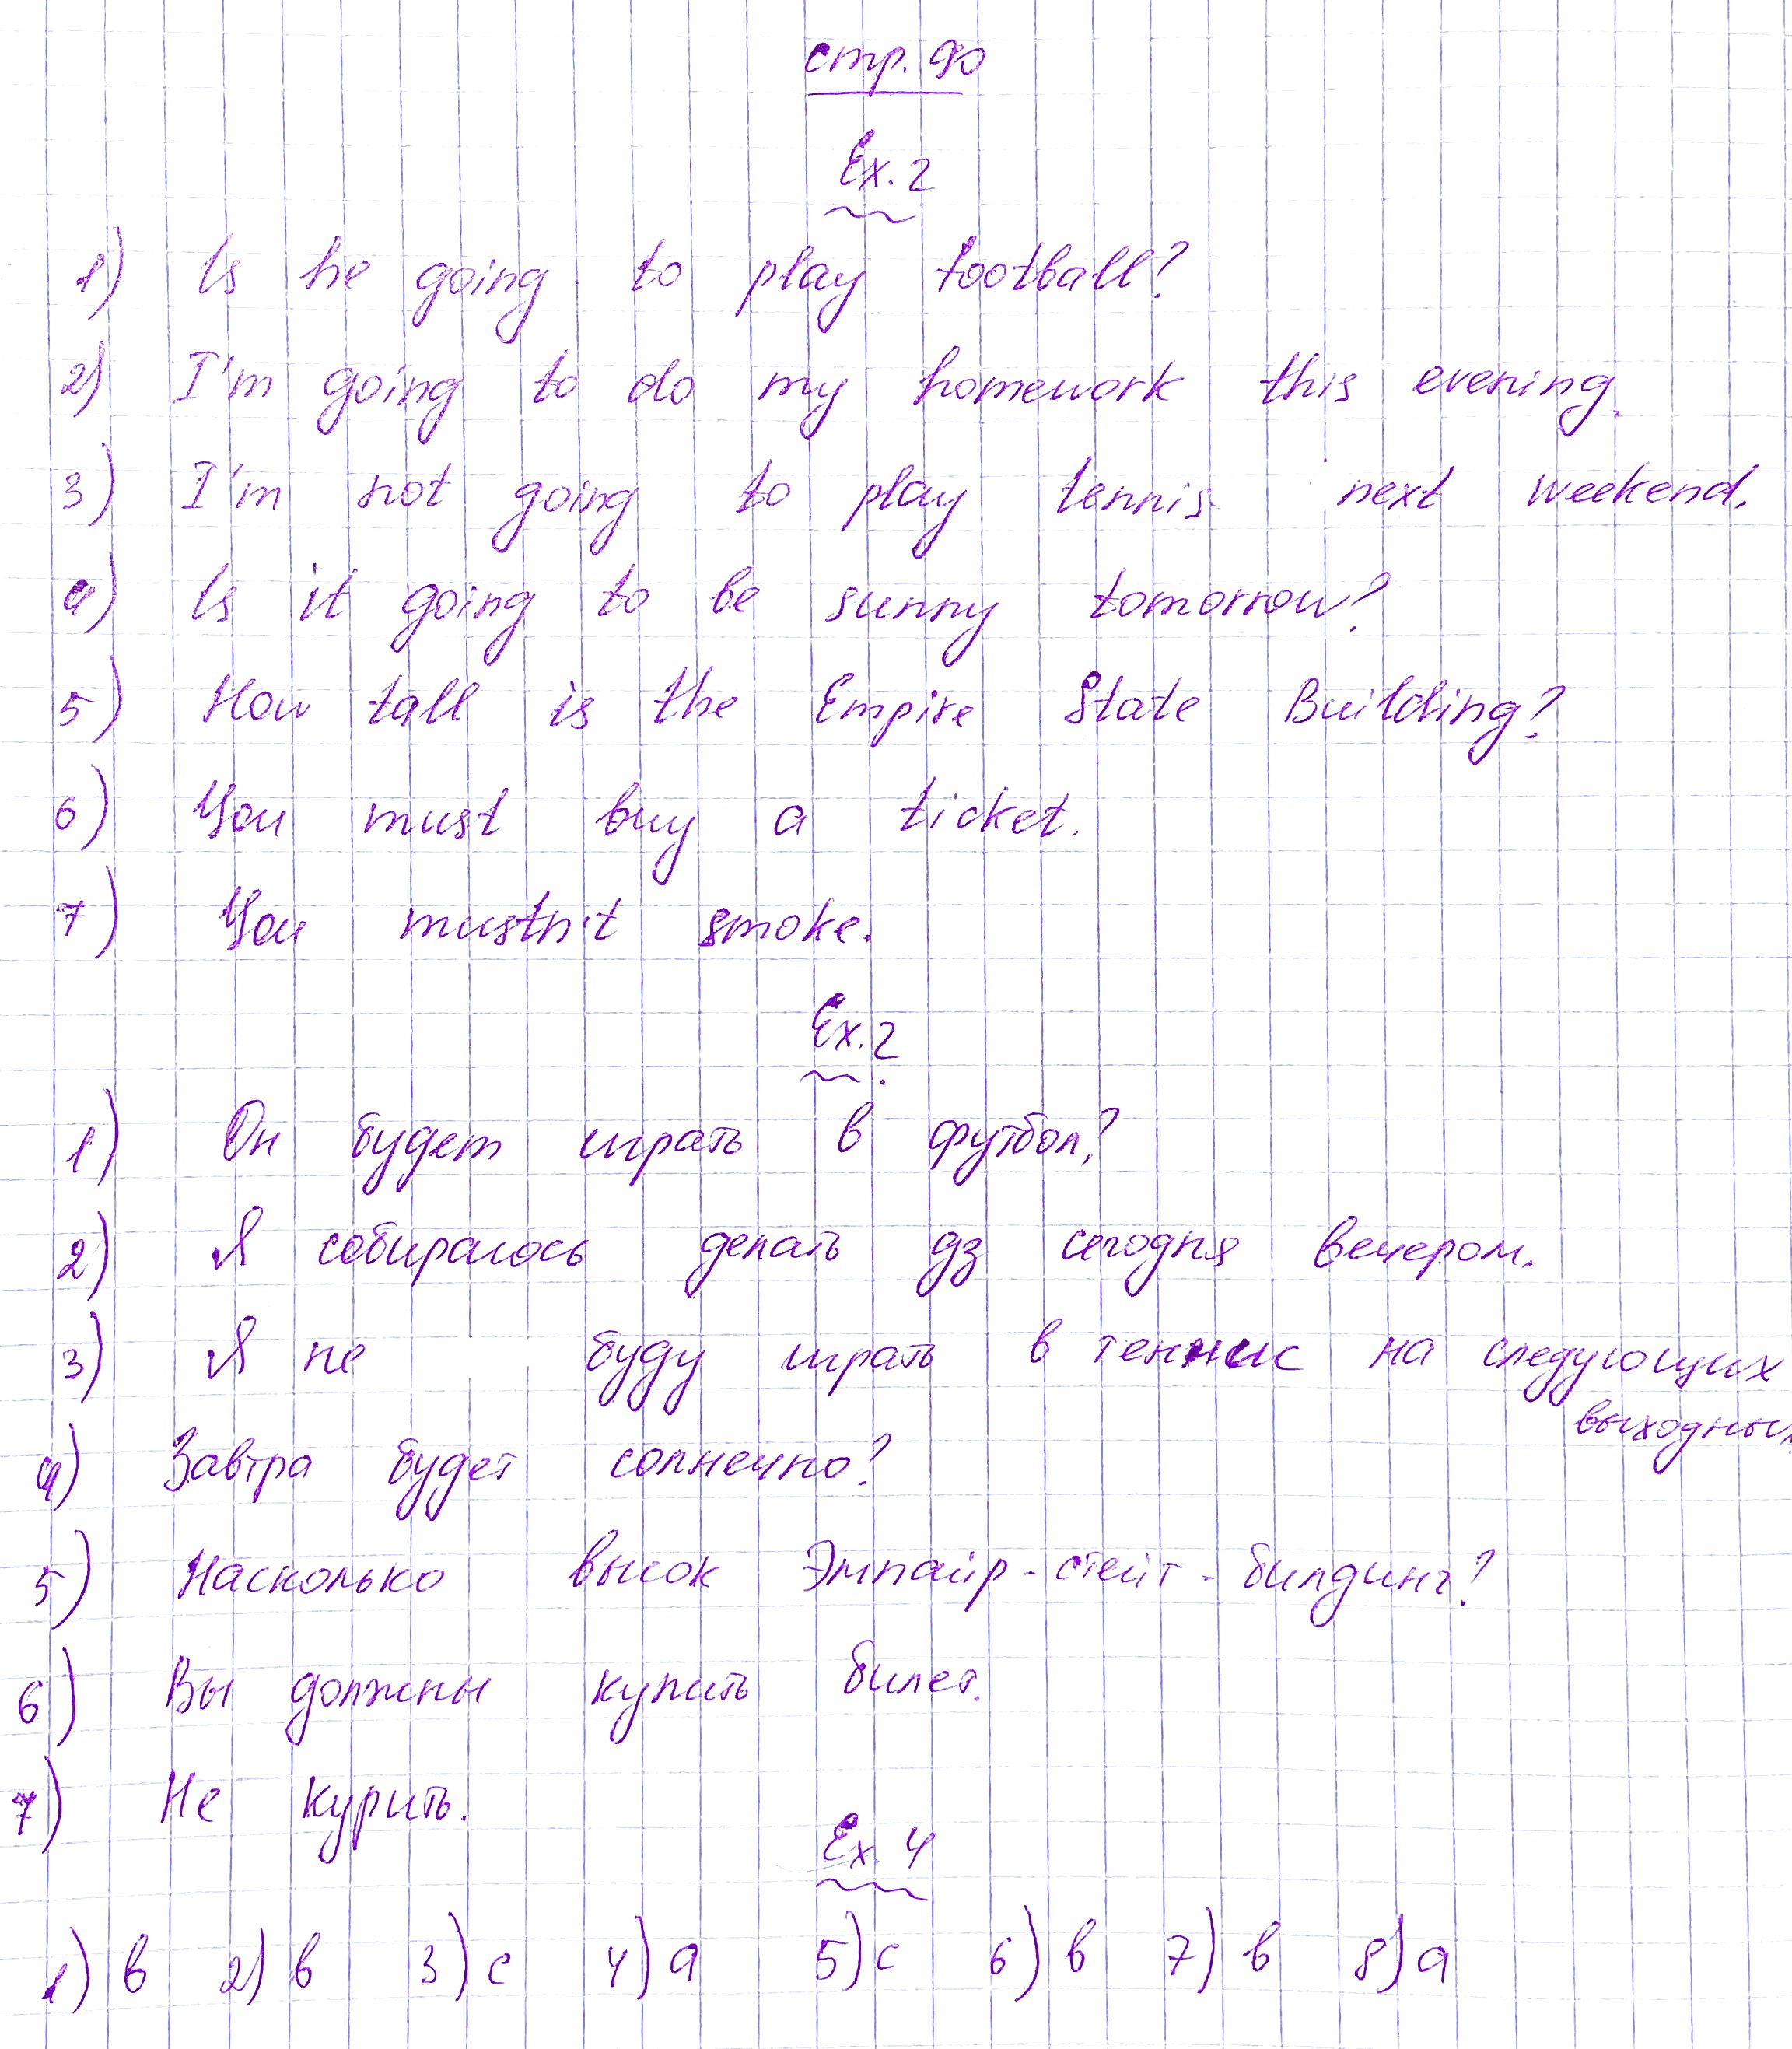 стр. 90
Ex. 2
1) Is he going to play football?
2) I'm going to do my homework this evening.
3) I'm not going to play tennis next weekend.
4) Is it going to be sunny tomorrow?
5) How tall is the Empire State Building?
6) You must buy a ticket.
7) You mustn't smoke.
Ex. 2
1) Он будет играть в футбол?
2) Я собираюсь делать дз сегодня вечером.
3) Я не буду играть в теннис на следующих
выходных
4) Завтра будет солнечно?
5) Насколько высок Эмпайр-стейт-билдинг?
6) Вы должны купить билет.
7) Не курить.
Ex. 4
1) в 2) в 3) с 4) а 5) с 6) в 7) в 8) а